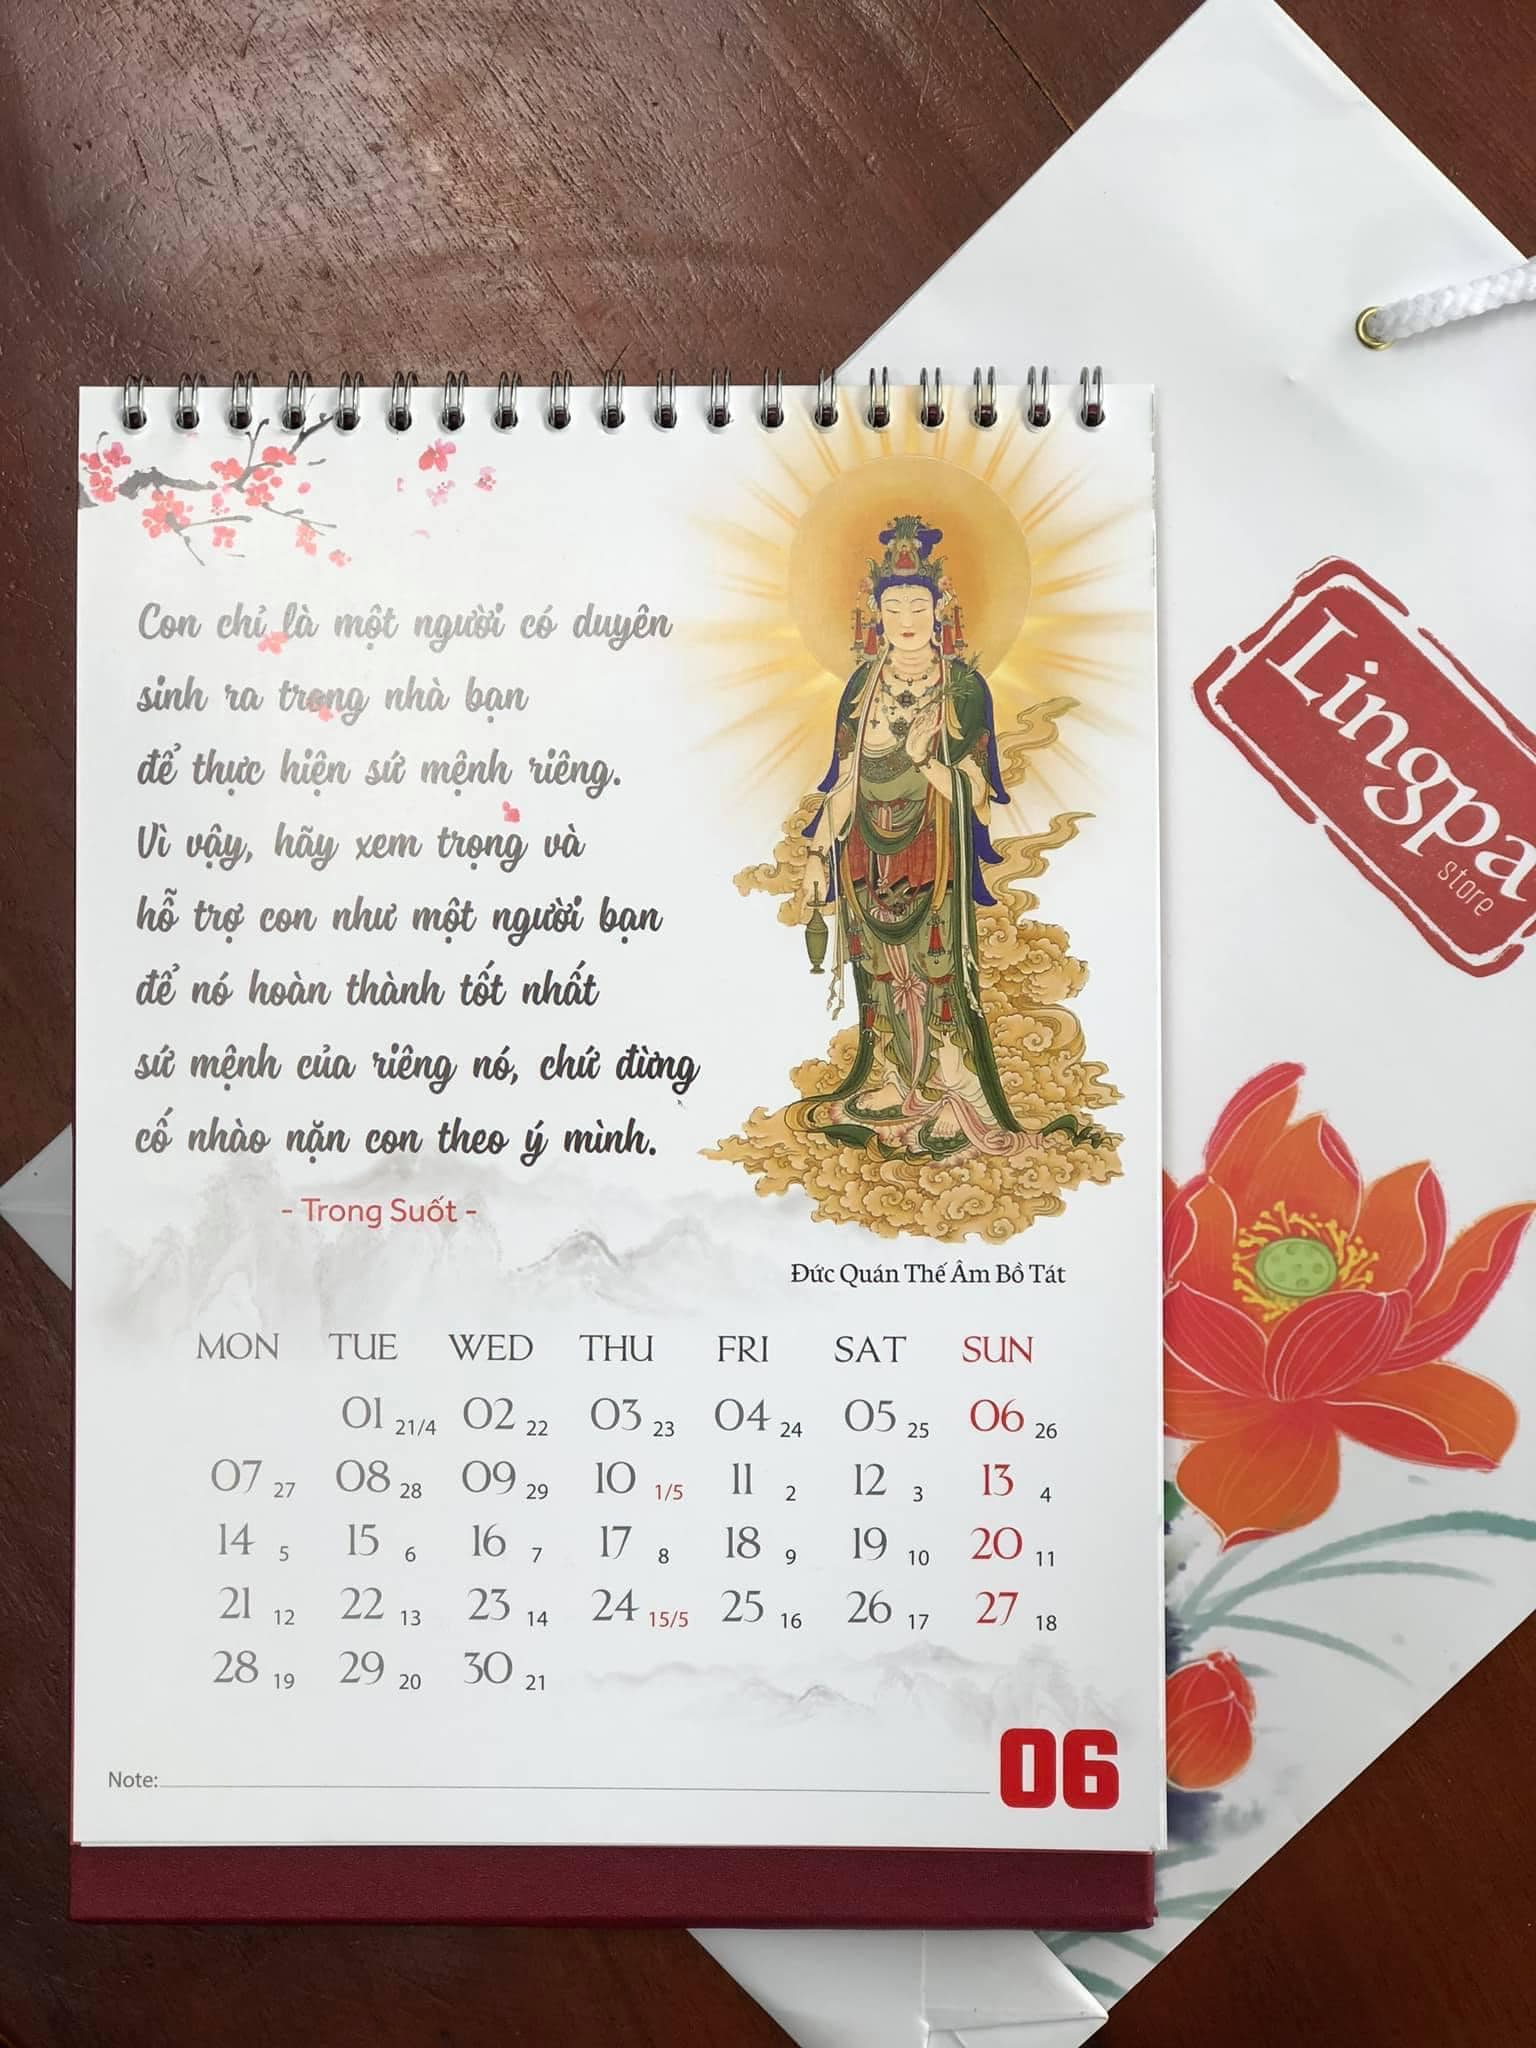 Con chỉ là một người có duyên
sinh ra trong nhà bạn
để thực hiện sứ mệnh riêng.
Vì vậy, hãy xem trọng và
hỗ trợ con như một người bạn
để nó hoàn thành tốt nhất
sứ mệnh của riêng nó, chứ đừng
cố nhào nặn con theo ý mình.
- Trong Suốt -
Đức Quán Thế Âm Bồ Tát
MON TUE WED THU FRI SAT SUN
01 21/4 02 22 03 23 04 24 05 25 06 26
07 27 08 28 09 29 10 1/5 11 2 12 3 13 4
14 5 15 6 16 7 17 8 18 9 19 10 20 11
21 12 22 13 23 14 24 15/5 25 16 26 17 27 18
28 19 29 20 30 21
Note:
06
Lingpa
store